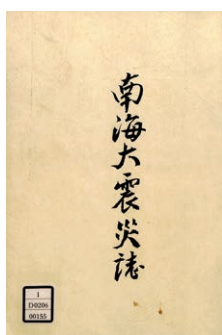 南海大震災誌
1
D0206
00155